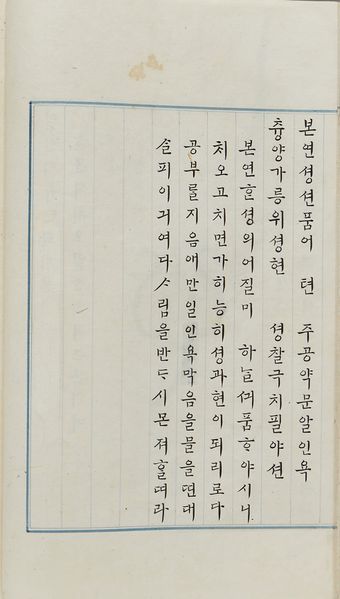 본연셩션품어텬 주공약문알인욕
츄양가릉위셩현 셩찰극치필야션
본연ᄒᆞᆫ셩의어질미 하ᄂᆞᆯ셔품ᄒᆞ야시니
치오고치면가히능히셩과현이되리로다
공부ᄅᆞᆯ지음애만일인욕막음을믈을딘대
ᄉᆞᆯ피이거여다ᄉᆞ림을반ᄃᆞ시몬져ᄒᆞᆯ띠라